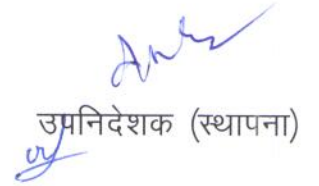 उपनिदेशक (स्थापना)